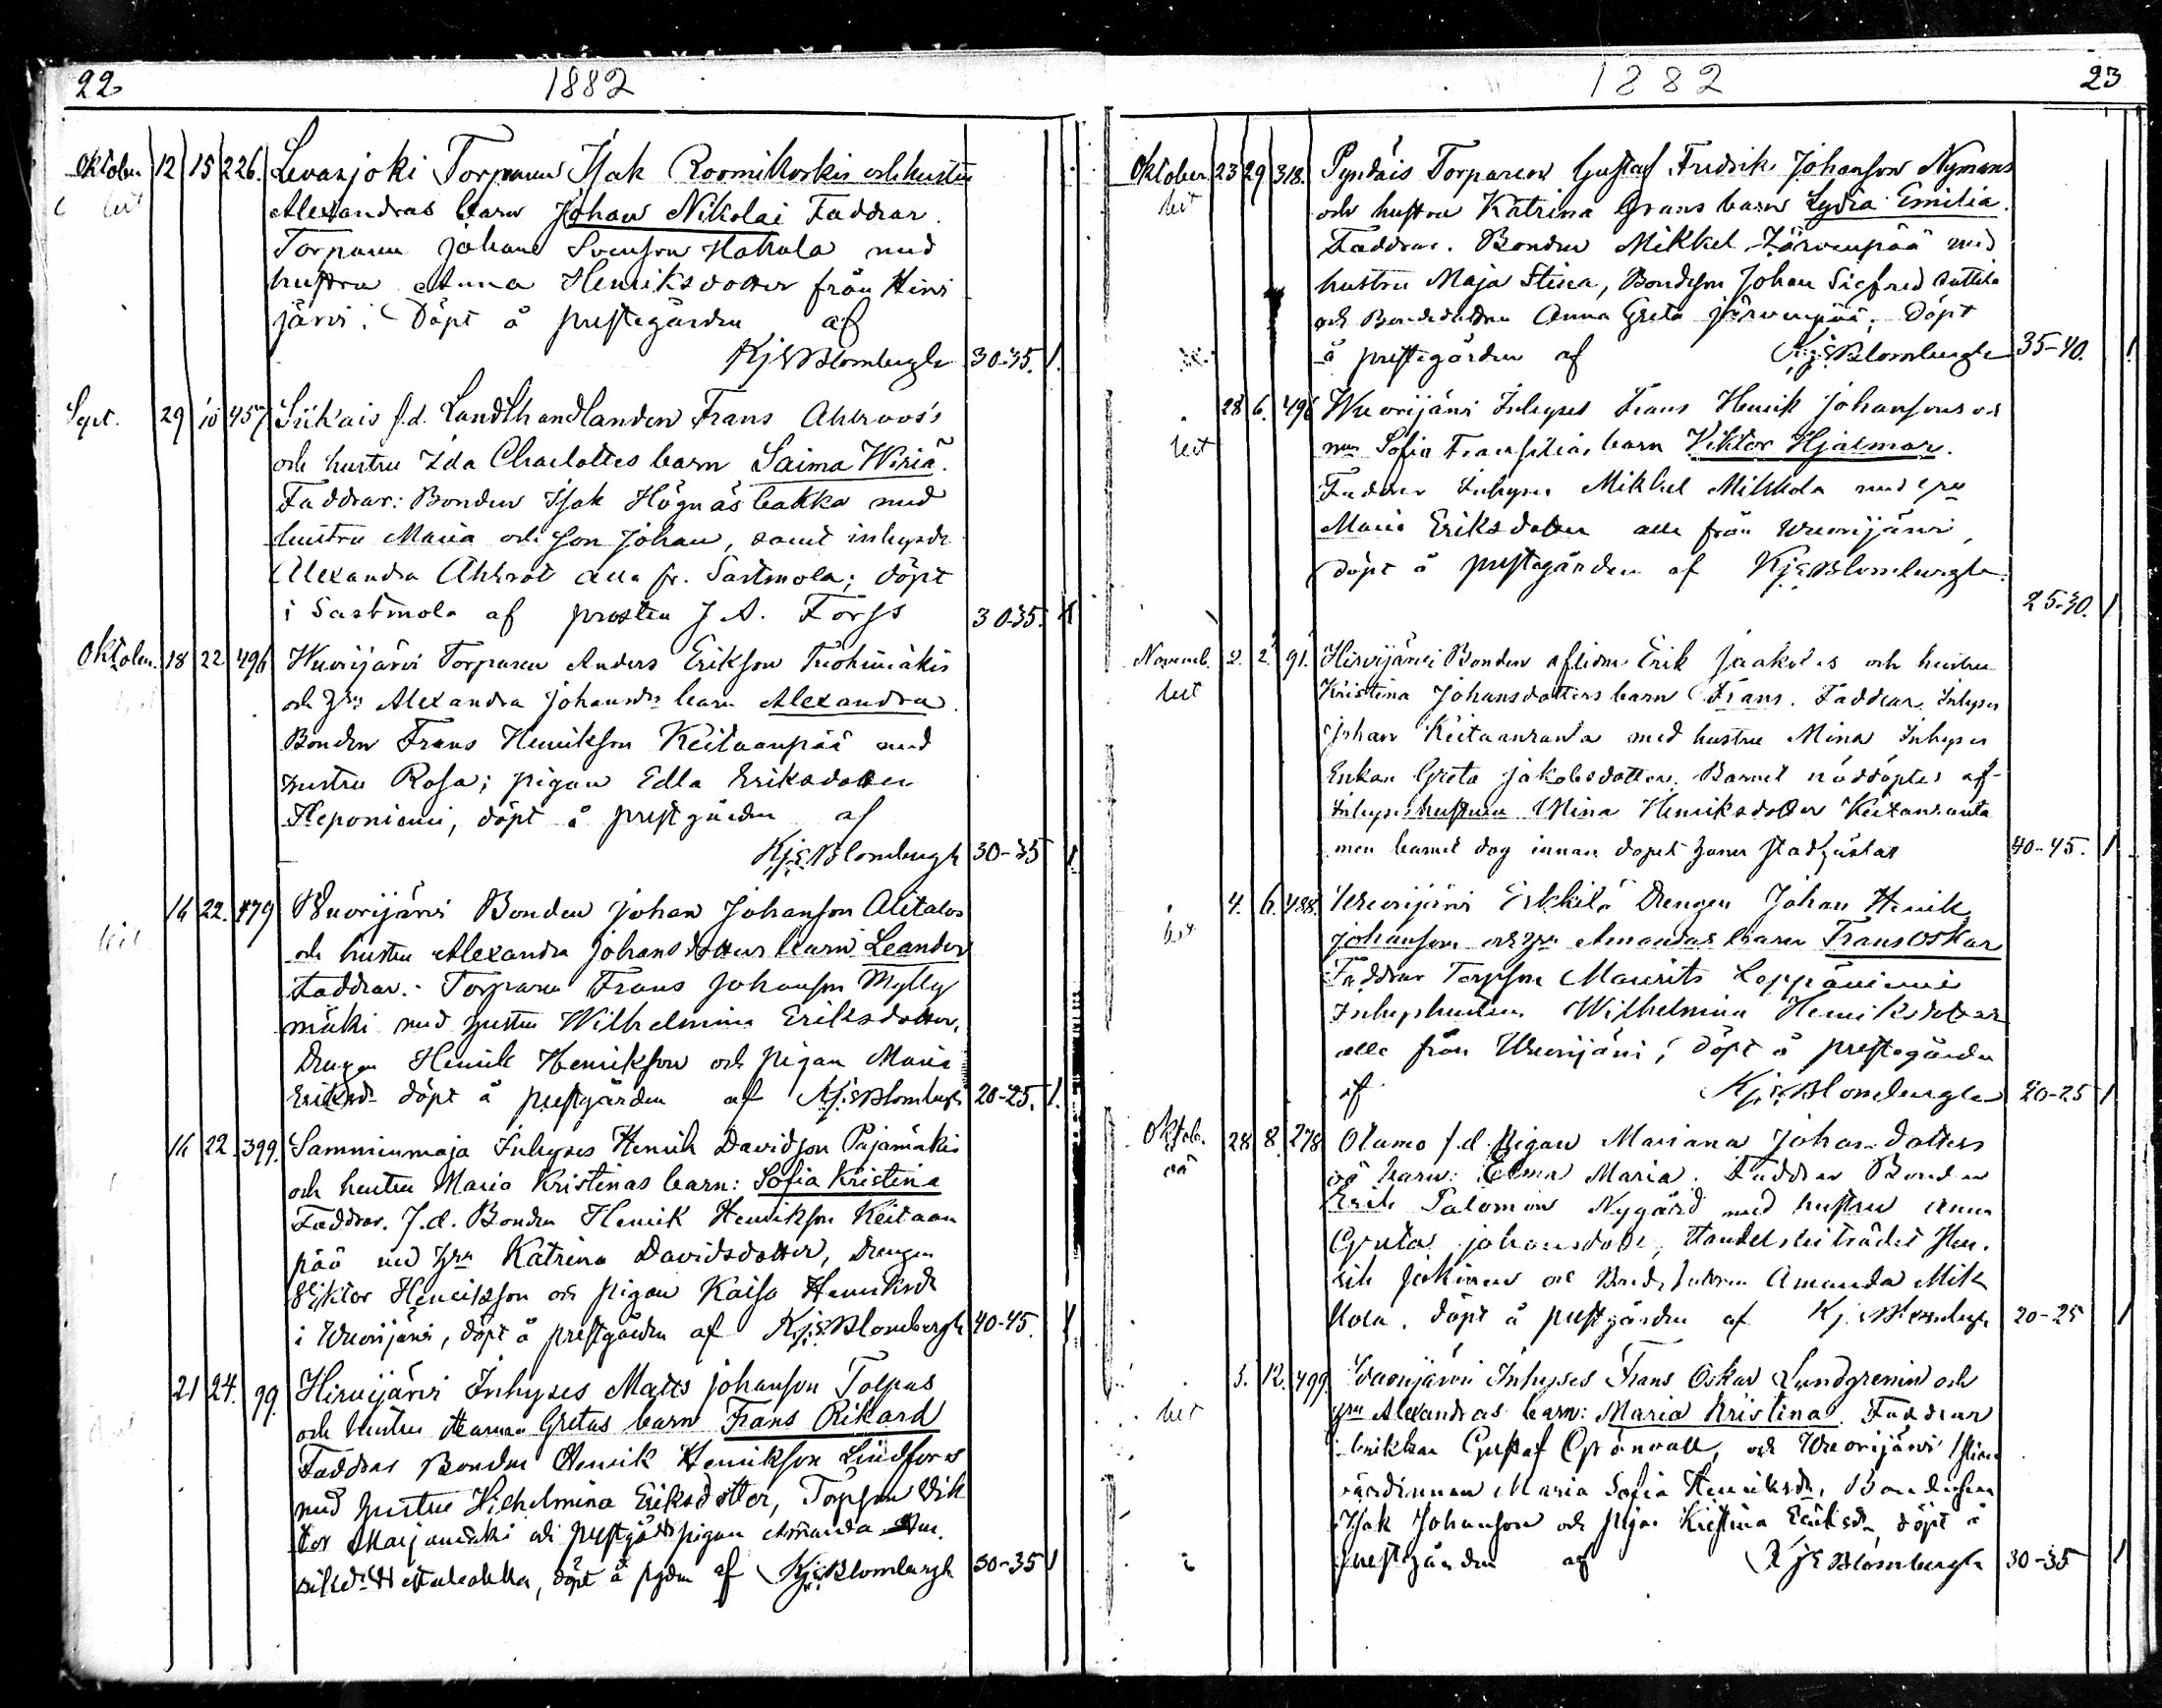 22. 1882
Oktober 12 15 226. Levasjoki Torparen Isak Roomikorkis och hustru
Alexandras barn Johan Nikolai Faddrar.
Torparen Johan Svenson Hakala med
hustru Anna Henriksdotter från Hirvi
järvi. Döpt å prestegården af
Kj: E Blombergh 30-35.
Sept. 29 10 457 Siikais f.d. Landthandlanden Frans Ahlroos's
och hustru Ida Charlottes barn Saima Wiriä.
Faddrar: Bonden Isak Högnäsbakka med
hustru Maria och son Johan, samt inhyses
Alexandra Ahlrot alla fr. Sastmola; döpt
i Sastmola af prosten J. A. Forss 30-35.
Oktober. 18 22 496 Wuorijärvi Torparen Anders Erikson
och h:ru Alexandra Johansd:rs barn Alexandra.
Bonden Frans Henrikson Keitaanpää med
hustru Rosa; pigan Edla Eriksdotter
Heponiemi, döpt å prestgården af
Kj: E Blombergh 30-35
16 22. 479 Wuorijärvi Bonden Johan Johanson Alitalos
och hustru Alexandra Johansdotters barn Leander
Faddrar. Torparen Frans Johanson Mylly
mäki med hustru Wilhelmina Eriksdotter,
Drengen Henrik Henrikson och pigan Maria
Eriksd:r döpt å prestgården af Kj: E Blombergh 20-25.
16 22. 399. Samminmaja Inhyses Henrik Davidson Pajamäkis
och hustru Maria Kristinas barn: Sofia Kristina
Faddrar. F.d. Bonden Henrik Henrikson Keitaan
pää med h:ru Katrina Davidsdotter, Drengen
Viktor Henrikson och pigan Kaisa Henriksd:r
i Wuorijärvi, döpt å prestgården af Kj: E Blombergh 40-45.
21 24. 99. Hirvijärvi Inhyses Matts Johanson Tolpas
och hustru Gretas barn Frans Rikard
Faddrar Bonden Henrik Henrikson Lindfors
med hustru Wilhelmina Eriksdotter, Torpson Vik
tor Marjamäki och prestgårdspigan Amanda Hen.
riksd:r, döpt å pgden af Kj: E Blombergh 30-35
1882 23
Oktober. 23 29 318. Pyntäis Torparen Gustaf Fredrik Johanson Nymans
och hustru Katrina Grans barn Lydia Emilia.
Faddrar. Bonden Mikkel Järvenpää med
hustru Maja Stina, Bondeson Johan Sigfred
och Bondedottren Anna Greta Järvenpää; Döpt
å prestegården af Kj: E Blombergh 35-40.
28 6. 496 Wuorijärvi Inhyses Frans Henrik Johansons och
Sofia barn Viktor Hjalmar.
Faddrar Inhyses Mikkel Mikkola med h:ru
Maria Eriksdotter alla från Wuorijärvi,
döpt å prestegården af Kj: E Blombergh.
25-30.
Novemb. 2. 2. 91. Hirvijärvi Bonden aflidne Erik Jaakolas och hustru
Kristina Johansdotters barn Frans. Faddrar. Inhyses
Johan Keitaanranta med hustru Mina Inhyses
Enkan Greta Jakobsdotter. Barnet nöddöptes af
Inhyseshustrun Mina Henriksdotter Keitanranta
men barnet dog innan dopet hann stadfästas 40-45.
4. 6. 488. Wuorijärvi Erkkilä Drengen Johan Henrik
Johanson och h:ru Amandas barn Frans Oskar
Faddrar Torpson Maurits Leppäniemi
Wilhelmina Henriksdotter
alla från Wuorijärvi; döpt å prestegården
af Kj: E Blombergh 20-25
Oktob. 28 8. 278 Otamo f.d. Pigan Mariana Johansdotters
oä barn: Elma Maria. Faddrar Bonden
Erik Salomon Nygård med hustru Anna
Greta Johansdotter, Handelsbiträdet Hen.
rik Jokinen och Amanda Mik
kola. döpt å prestgården af Kj: E Blombergh 20-25
5. 12. 499. Wuorijärvi Inhyses Frans Oskar Lundgrenin och
h:ru Alexandras barn: Maria Kristina. Faddrar
Gustaf Grönvall, och Wuorijärvi
värdinnan Maria Sofia Henriksdr, Bondeson
Isak Johanson och pigan Kristina Eriksdr, döpt å
prestgården af Kj: E Blombergh 30-35